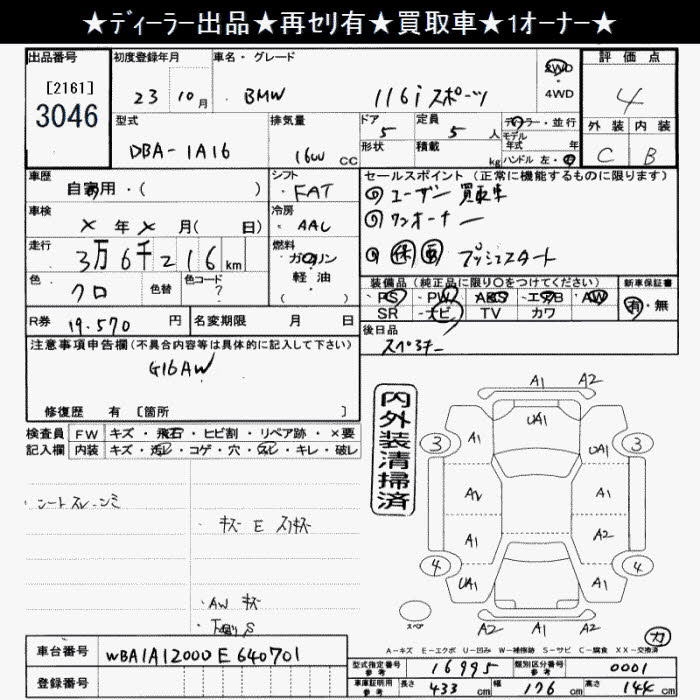 ★ディーラー出品★再セリ有★買取車★1オーナー★
出品番号 初度登録年月 車名・グレード 評価点
[2161]
3046
23 10月 BMW 116i スポーツ 2WD
4WD 4
型式 排気量 ドア 定員 ディーラー・並行
DBA-1A16 1600 CC 5 5 人 モデル年式 年
形状 積載 kg ハンドル 左・右
外装 内装
C B
車歴 シフト セールスポイント (正常に機能するものに限ります)
自家用・( ) FAT ①ユーザー買取車
車検 冷房 ①ワンオーナー
× 年 × 月( 日) AAC
走行 燃料
3万6千216 km ガソリン プッシュスタート
軽油
( )
色 色替 色コード
クロ ?
装備品 (純正品に限り○をつけてください) 新車保証書
PS PW ABS エアB AW 有・無
SR ナビ TV カワ
R券 19.570 円 名変期限 月 日
後日品
スペアキー
注意事項申告欄(不具合内容等は具体的に記入して下さい)
G16AW
修復歴 有 [箇所 ]
検査員 FW キズ・飛石・ヒビ割・リペア跡・×要
記入欄 内装 キズ・汚レ・コゲ・穴・スレ・キレ・破レ
内外装清掃済
A1 A2
A1 UA1 UA1
3 3
A2 A1
A1 A2
4 4
UA1 A1
A2 A2 A1
スペア
シートスレ・シミ
キズ E スリキズ
AW キズ
下廻り S
カ
A-キズ E-エクボ U-凹み W-補修跡 S-サビ C-腐食 XX-交換済
車台番号 WBA1A12000E640701
登録番号
型式指定番号 参考 16995 類別区分番号 参考 0001
車庫証明用 参考 長さ 433 cm 幅 176 cm 高さ 144 cm